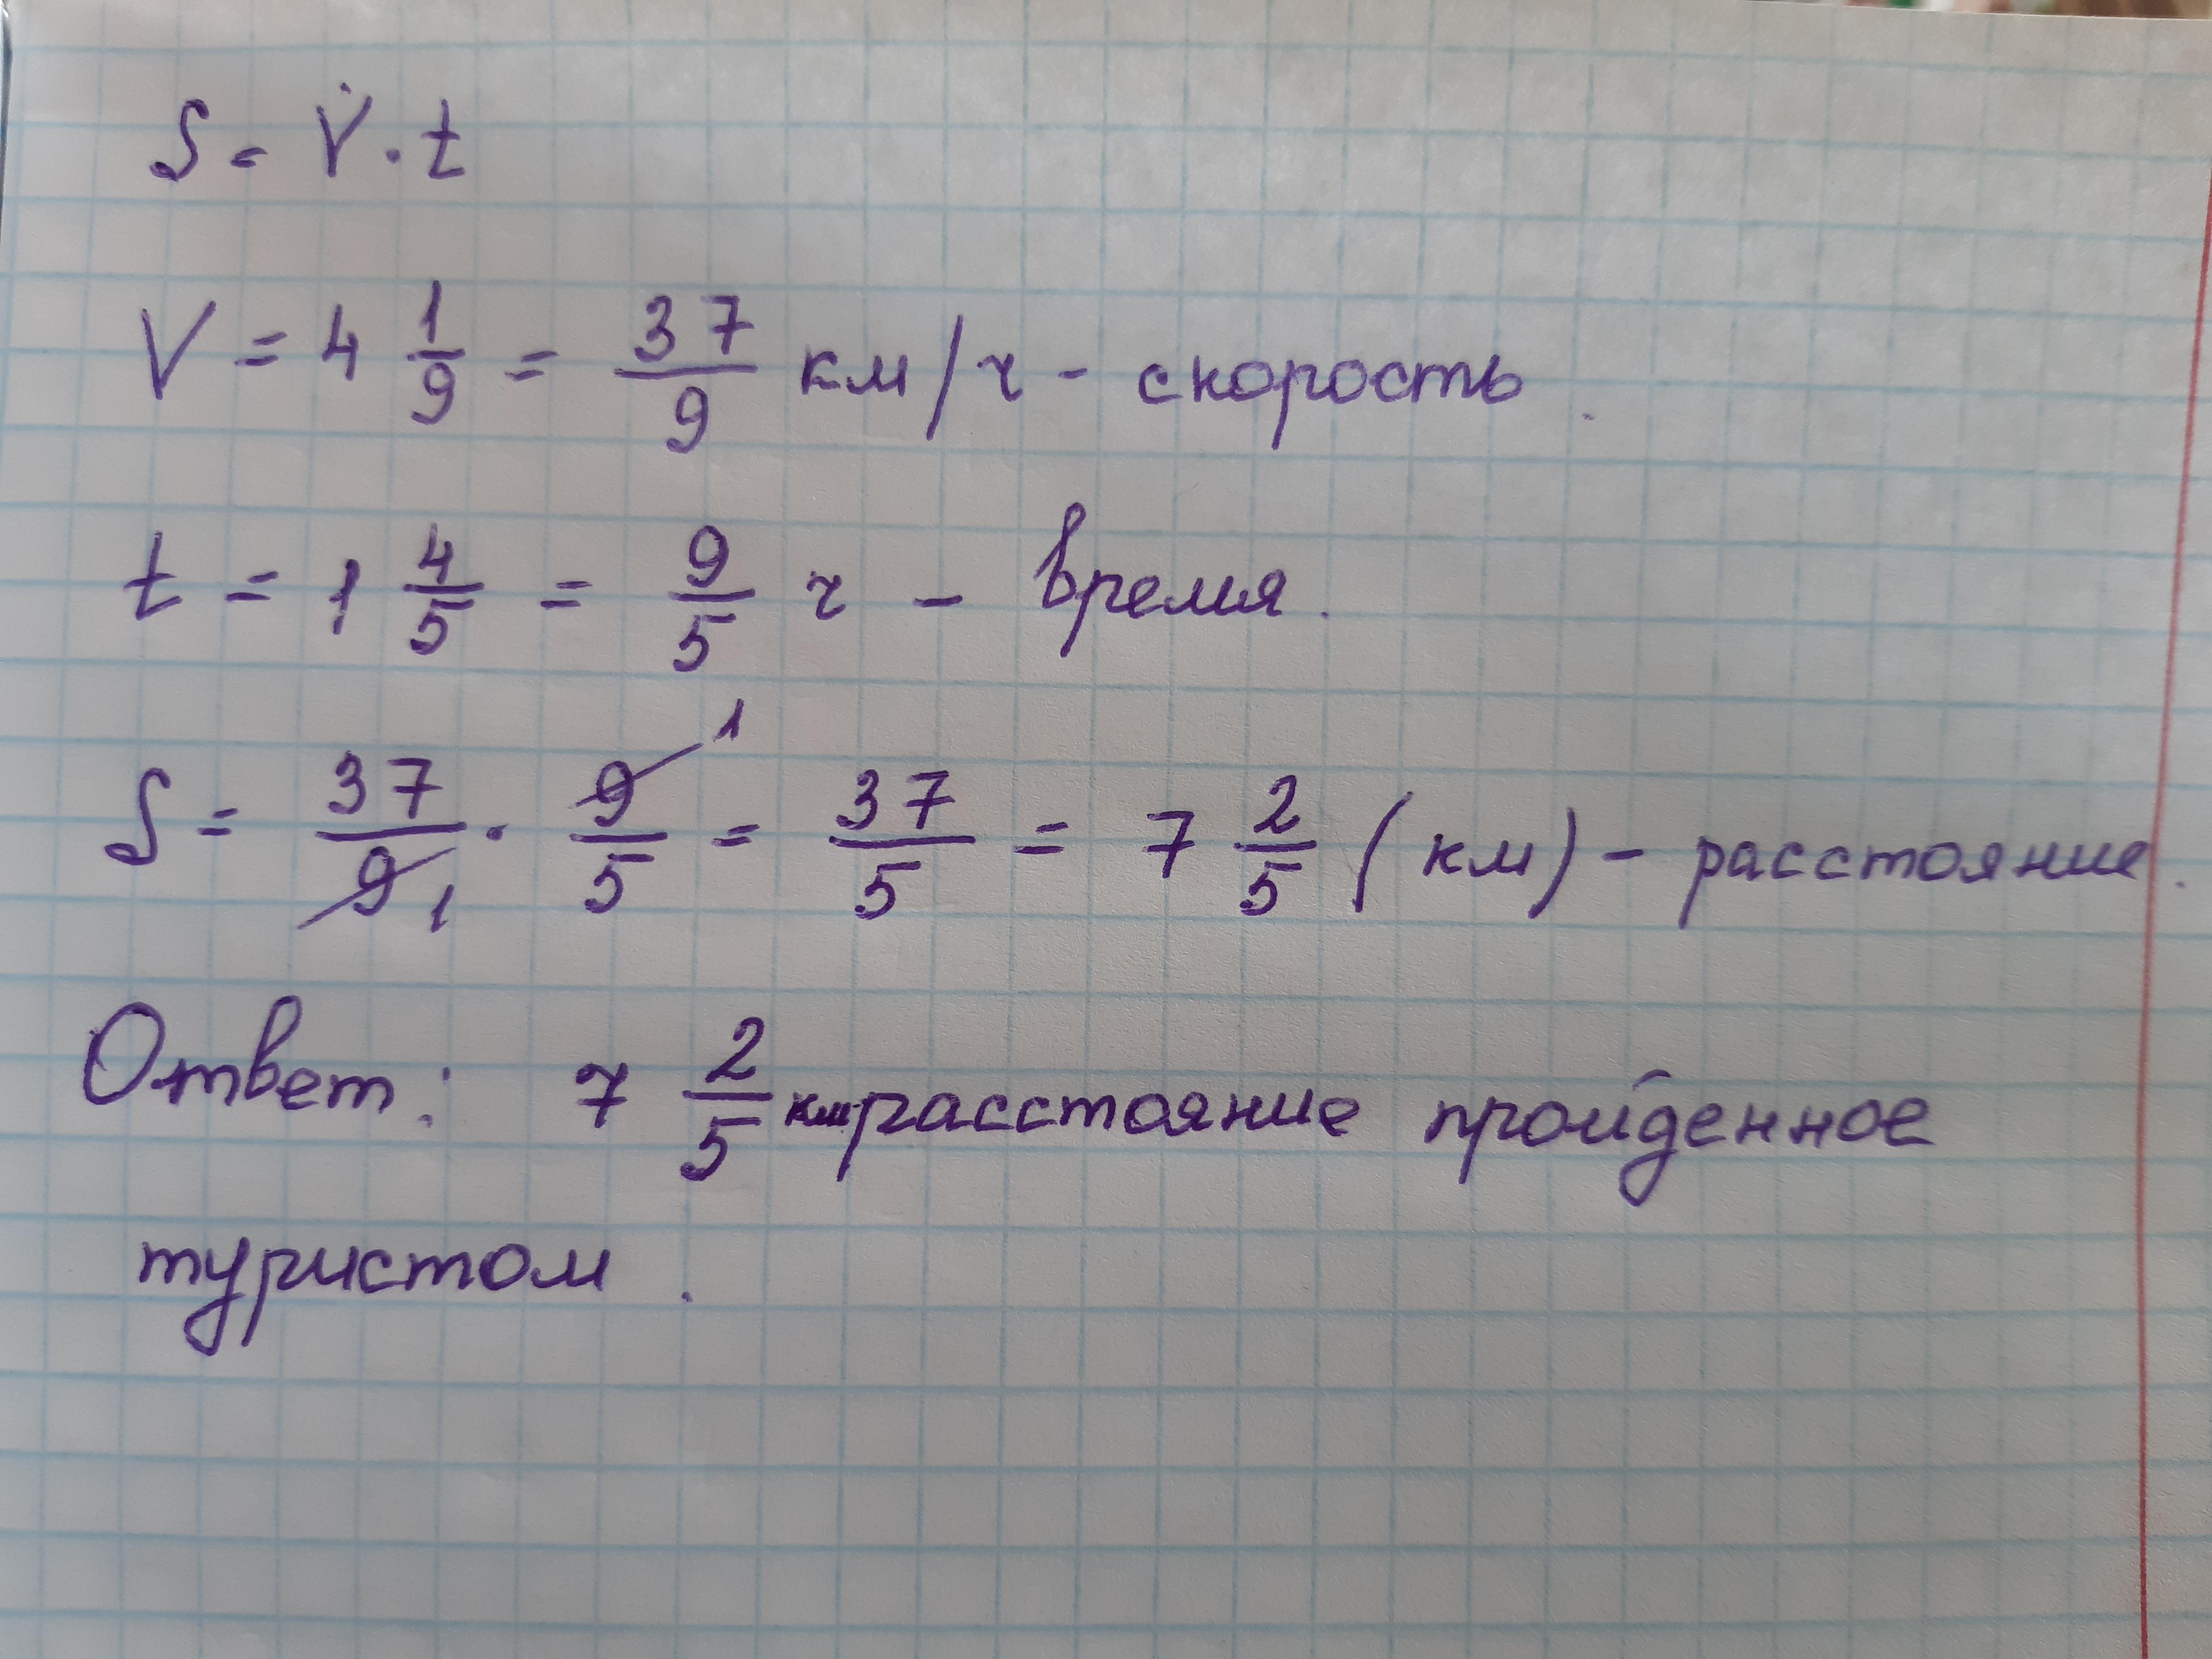 S = V · t
V = 4 1/9 = 37/9 км/ч - скорость.
t = 1 4/5 = 9/5 ч - время.
S = 37/9 1 · 9/5 1 = 37/5 = 7 2/5 (км) - расстояние.
Ответ: 7 2/5 км расстояние пройденное
туристом.